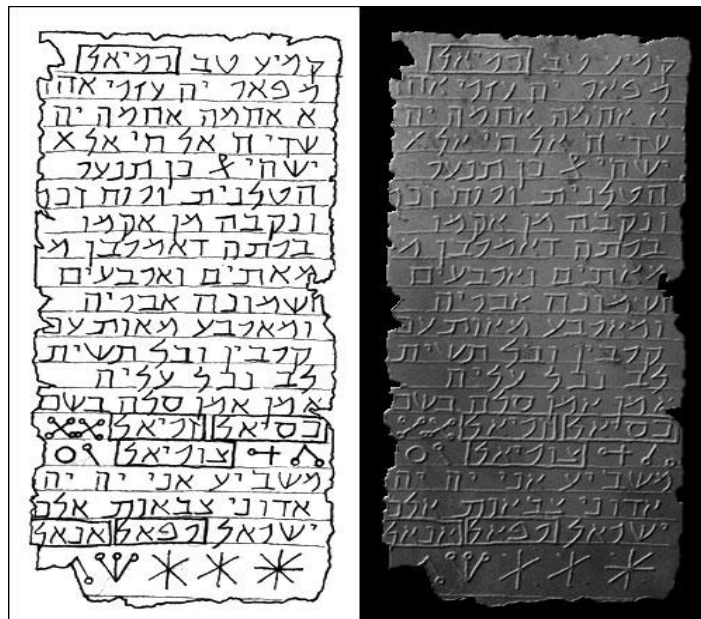 קמיע טב רמיאל
מפאר יה עזרי
א אחמה אחמה יה
שדי ח אל חי אל
ישהי כן תנער
הטלנית ורוח זכר
ונקבה מן אקמו
ברתה דאמרבן מ
מאתים וארבעים
ושמונה אבריה
ומארבע מאות
קרבין ובל תשית
לב ובל עליה
אמן אמן סלה בשם
כסיאל וריאל
צוריאל
משביע אני יה יה
אדוני צבאות אלה
ישראל רפאל אנאל